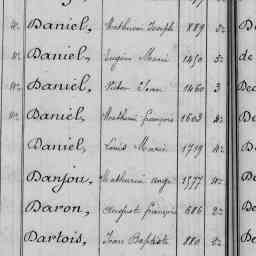 Daniel, Mathurin Joseph 889 5e
Daniel, Eugène Marie 1450 5e
Daniel, Victor Jean 1460 3
Daniel, Mathurin françois 1603 4e
Daniel, Louis Marie 1719 4e
Danjou, Mathurin ange 1577
Daron, françois 686 2e
Dartois, Jean Baptiste 880 2e